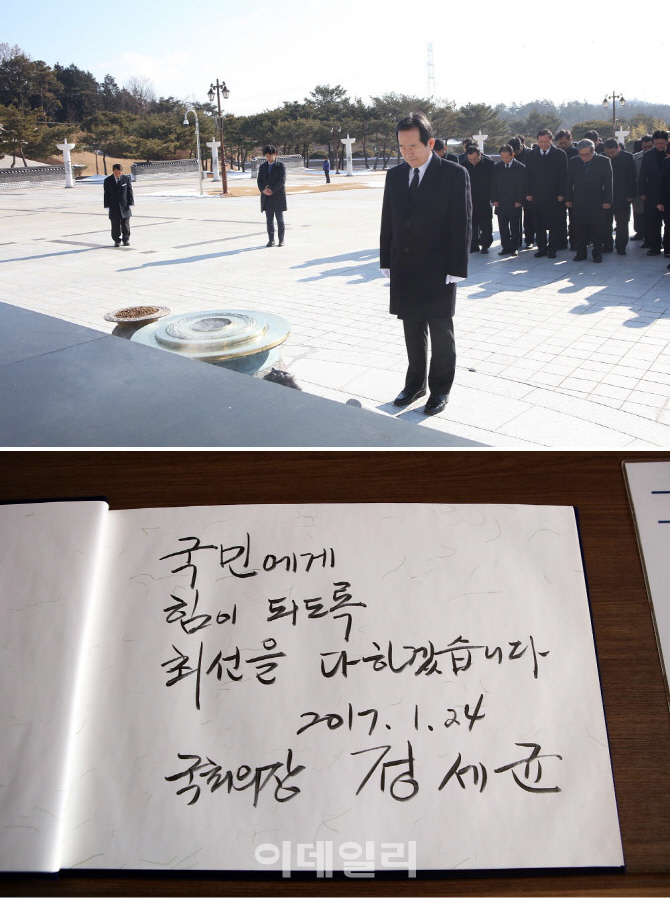 국민에게
힘이 되도록
최선을 다하겠습니다
2017. 1. 24
국회의장 정세균
이데일리